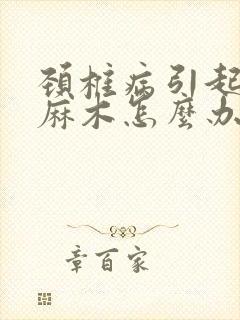 頚椎病引起
麻木怎麼办
章百家